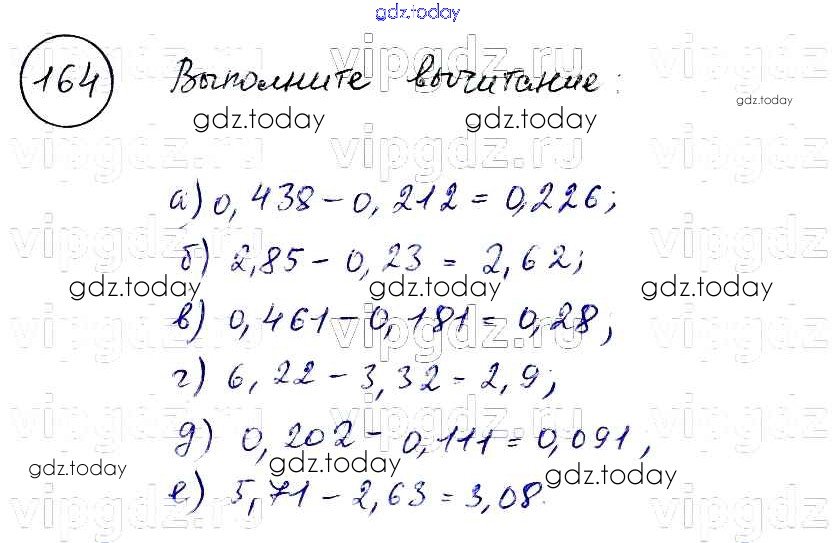 gdz.today
164 Выполните вычитание:
gdz.today gdz.today gdz.today
а) 0,438 - 0,212 = 0,226;
б) 2,85 - 0,23 = 2,62;
gdz.today gdz.today gdz.today
в) 0,461 - 0,181 = 0,28;
г) 6,22 - 3,32 = 2,9;
д) 0,202 - 0,111 = 0,091,
gdz.today gdz.today gdz.today
е) 5,71 - 2,63 = 3,08.
vipgdz.ru vipgdz.ru